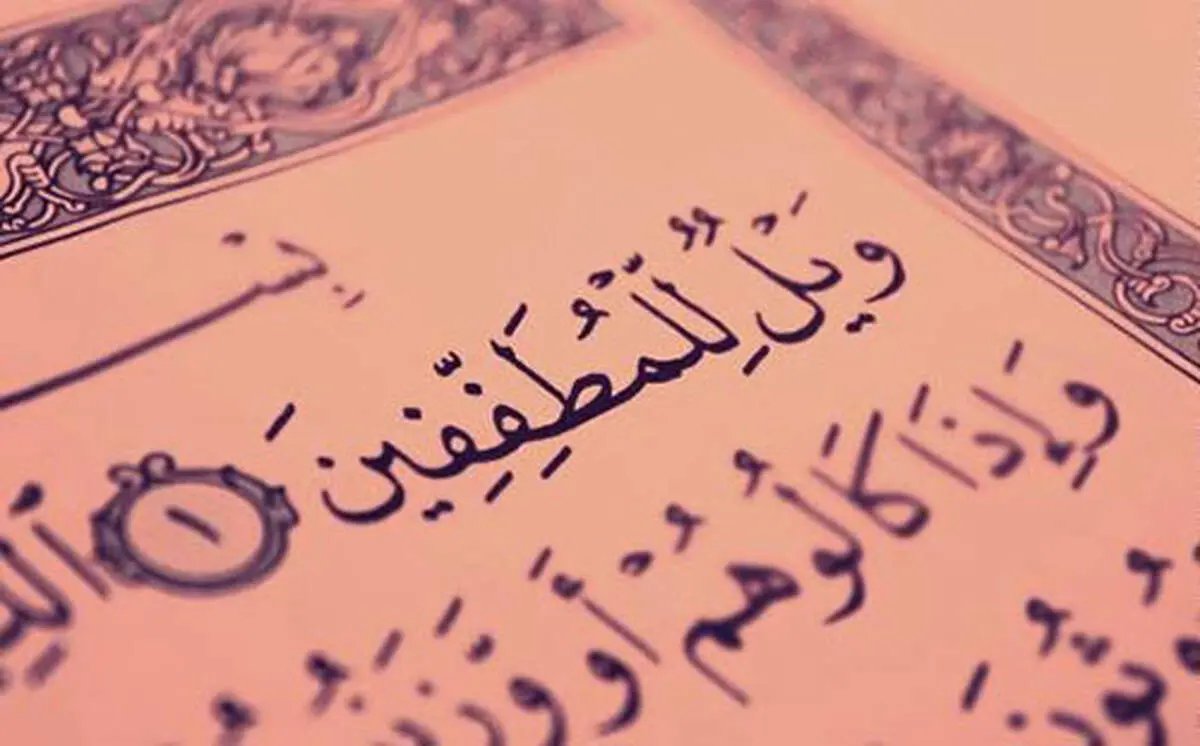 بِسْـ
وَيْلٌ لِّلْمُطَفِّفِينَ ١
وَإِذَا كَالُوهُمْ أَو